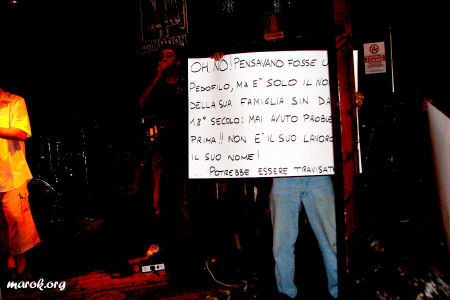 OH, NO! PENSAVANO FOSSE U
PEDOFILO, MA E' SOLO IL NO
DELLA SUA FAMIGLIA SIN DA
18° SECOLO: MAI AVUTO PROBLE
PRIMA!! NON E' IL SUO LAVORO
IL SUO NOME!
POTREBBE ESSERE TRAVISAT
marok.org